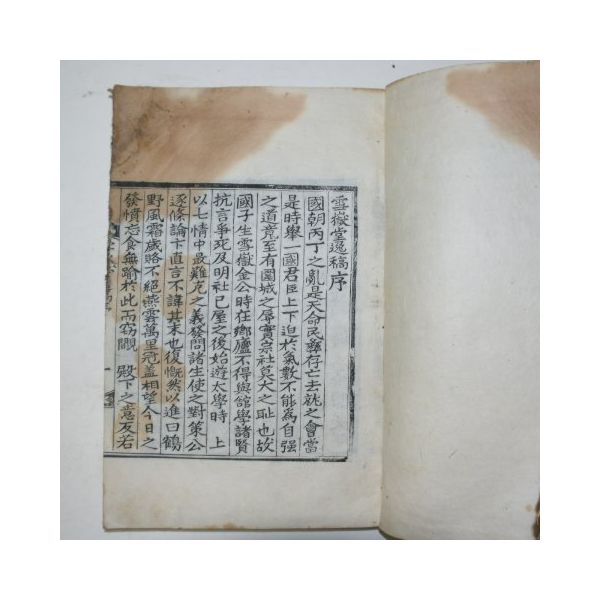 雪嶽堂逸稿序
國朝丙丁之亂是天命民彝存亡去就之會當
是時舉一國君臣上下迫於氣數不能為自强
之道竟至有圍城之辱實宗社莫大之耻也故
國子生雪嶽金公時在鄕廬不得與館學諸賢
抗言爭死及明社已屋之後始遊太學時 上
以七情中最難克之義發問諸生使之對策公
逐條論卞直言不諱其末也復慨然以進曰鶴
野風霜歲賂不絕燕雲萬里冠盖相望今日之
發憤忘食無踰於此而窃覸 殿下之意反若